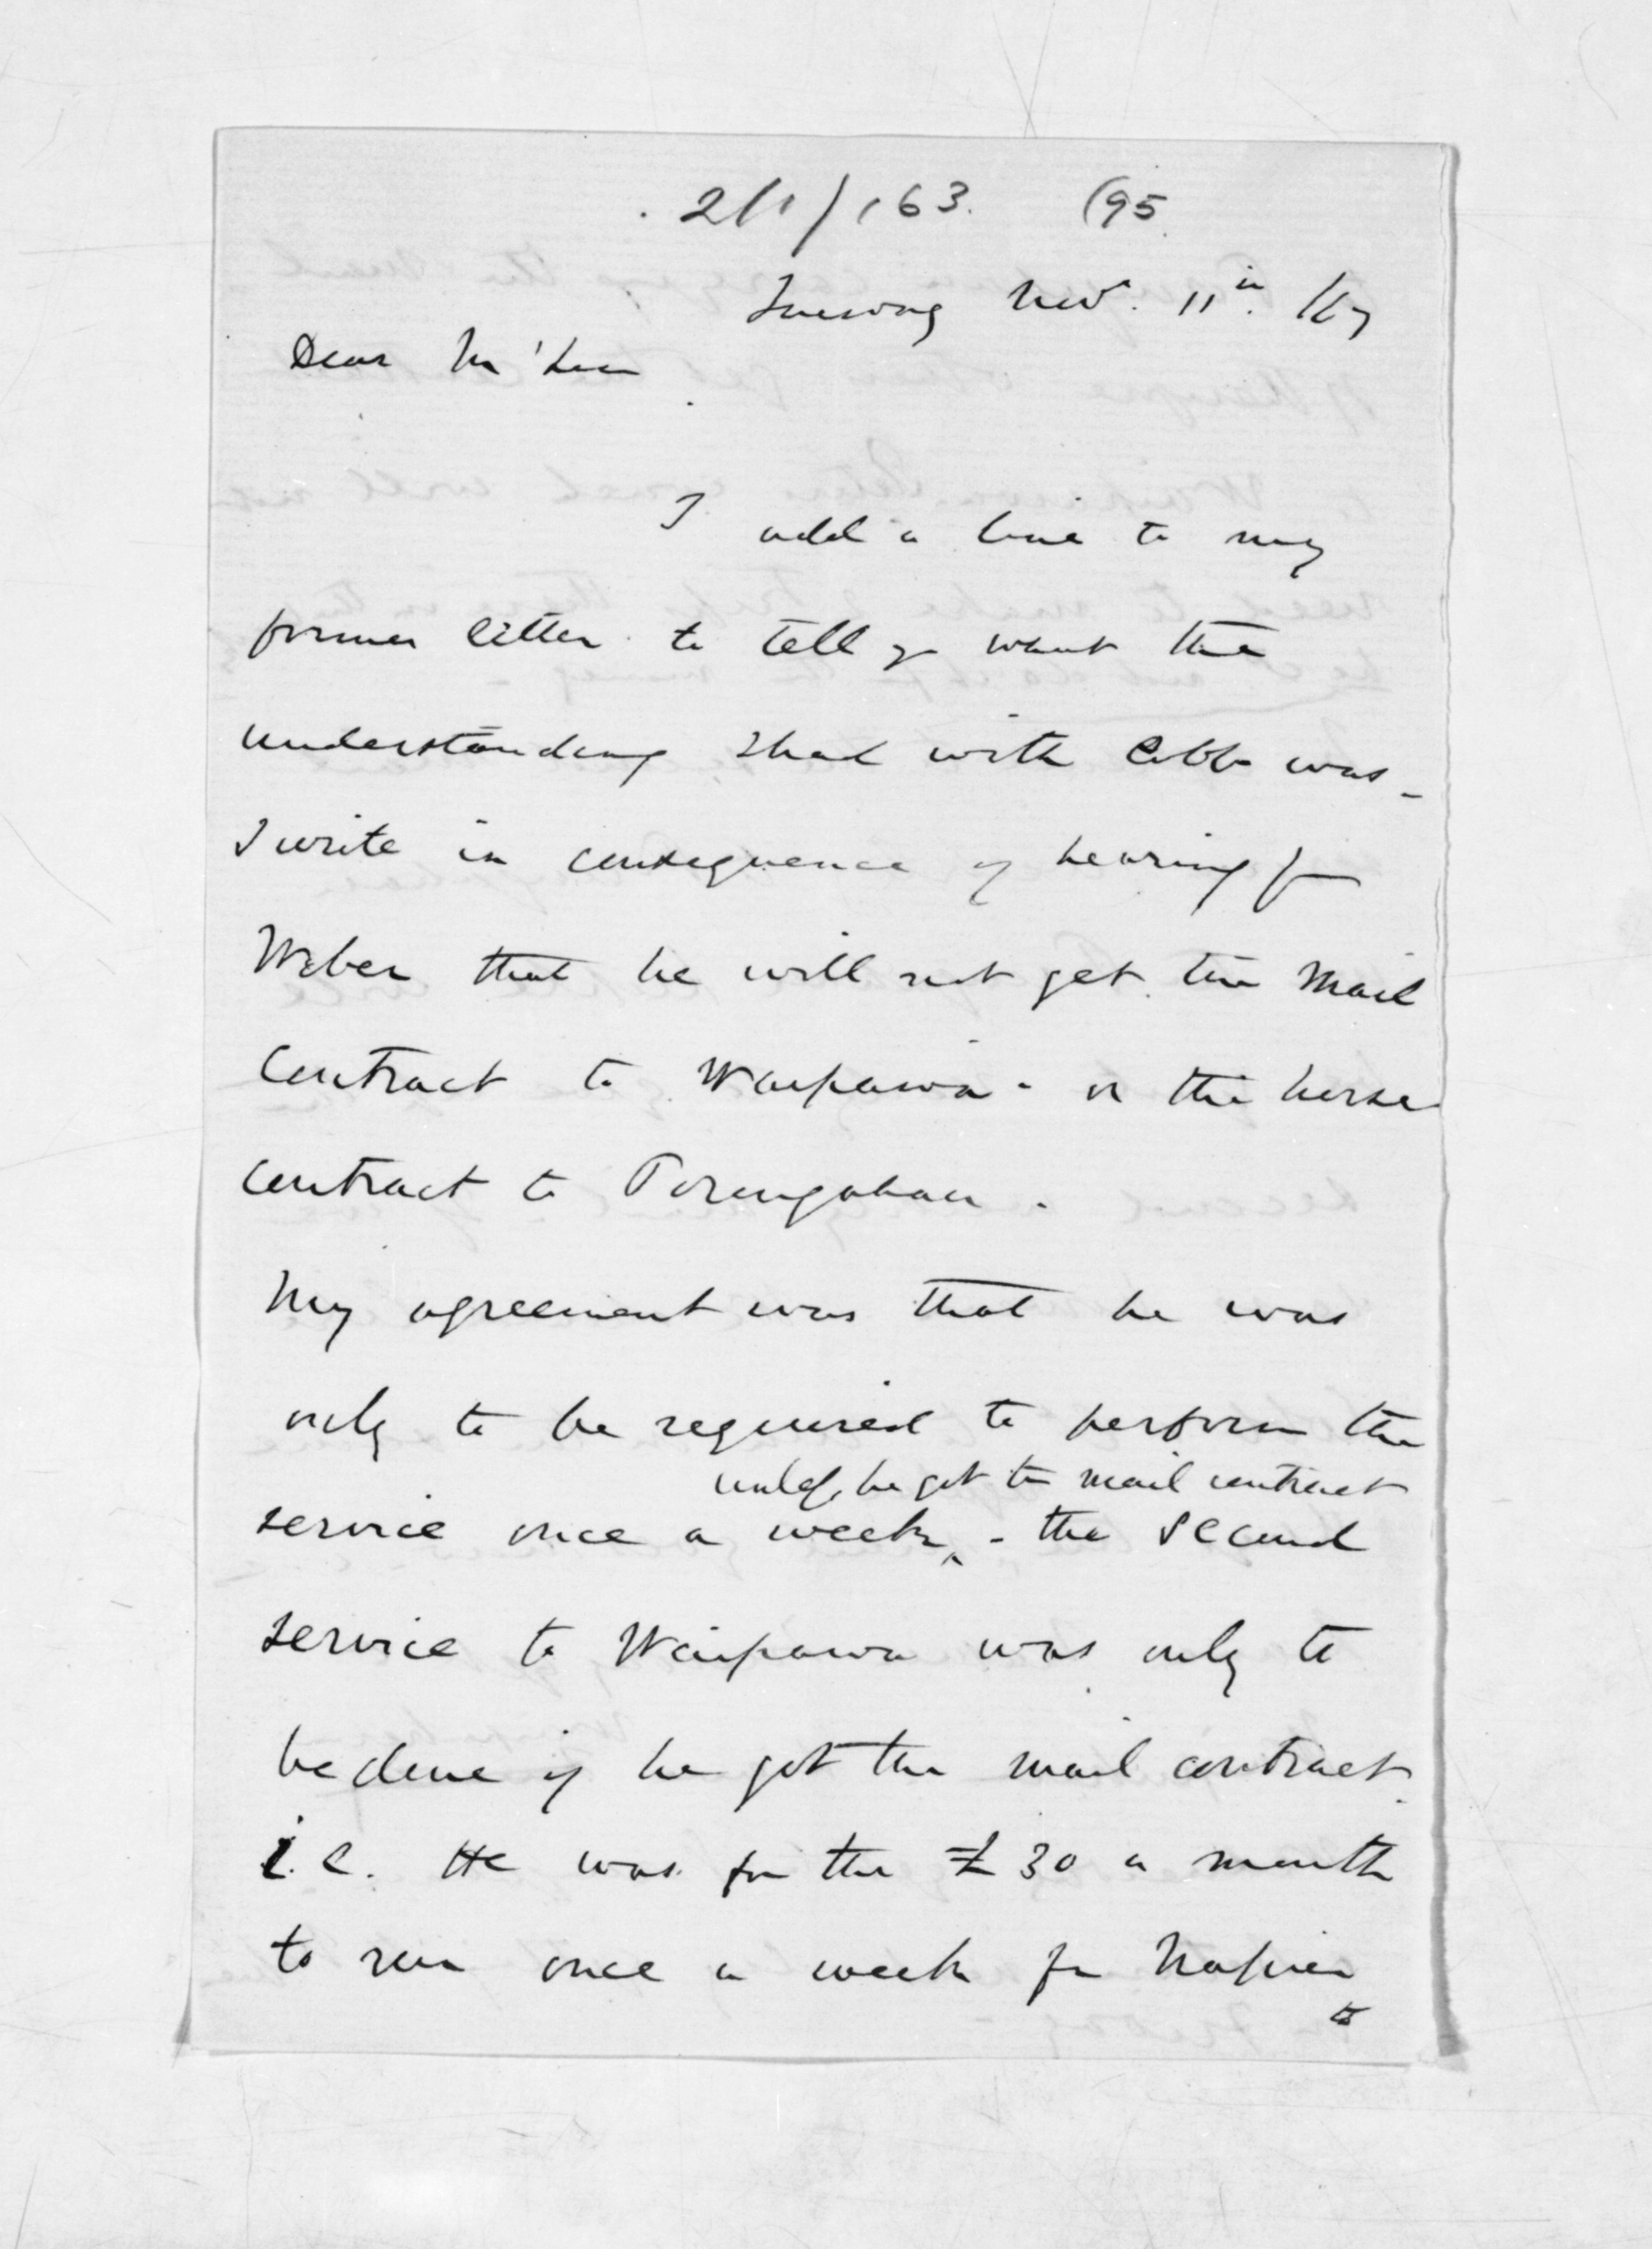 2/1/163. (95
Tuesday Nov. 11th. /67
Dear McLean
I add a line to my
former letter to tell yr what the
understanding I had with Cobb was -
I write in consequence of hearing fm
Weber that he will not get the Mail
Contract to Waipawa - or the horse
contract to Porangahau.
My agreement was that he was
only to be required to perform the
unless he got the mail contract
service once a week ^ - the second
service to Waipawa was only to
be done if he got the mail contract.
i.e. He was for the £30 a month
to run once a week fm Napier
to